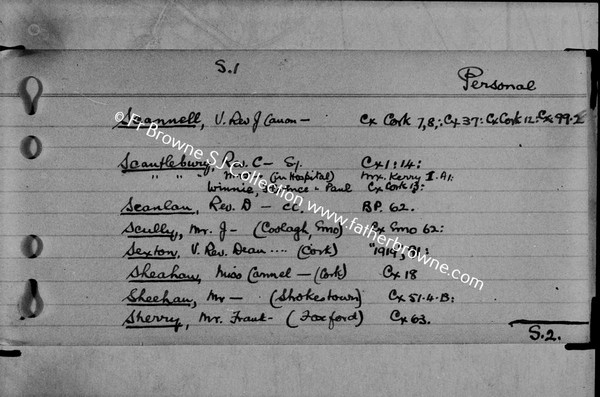 S.1
Personal
Scannell, V. Rev J Canon — Cx Cork 7,8,: Cx 37: Cx Cork 12: Cx 99.2
Scantlebury, Rev. C — S.J. Cx 1: 14:
" " " (in Hospital) Mx. Kerry II. A1:
Winnie, & Paul Cx Cork 13:
Scanlan, Rev. D — CC. BP. 62.
Scully, Mr. J — (Coolagh, Emo) Cx Emo 62:
Sexton, V. Rev. Dean .... (Cork) "1914,
Sheahan, Miss Carmel — (Cork) Cx 18
Sheehan, Mr — (Strokestown) Cx 51.4.B:
Sherry, Mr. Frank — (Foxford) Cx 63.
S.2.
©Fr Browne S.J. Collection www.fatherbrowne.com